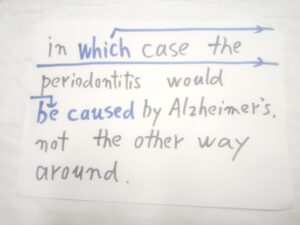 in which case the
periodontitis would
be caused by Alzheimer's,
not the other way
around.